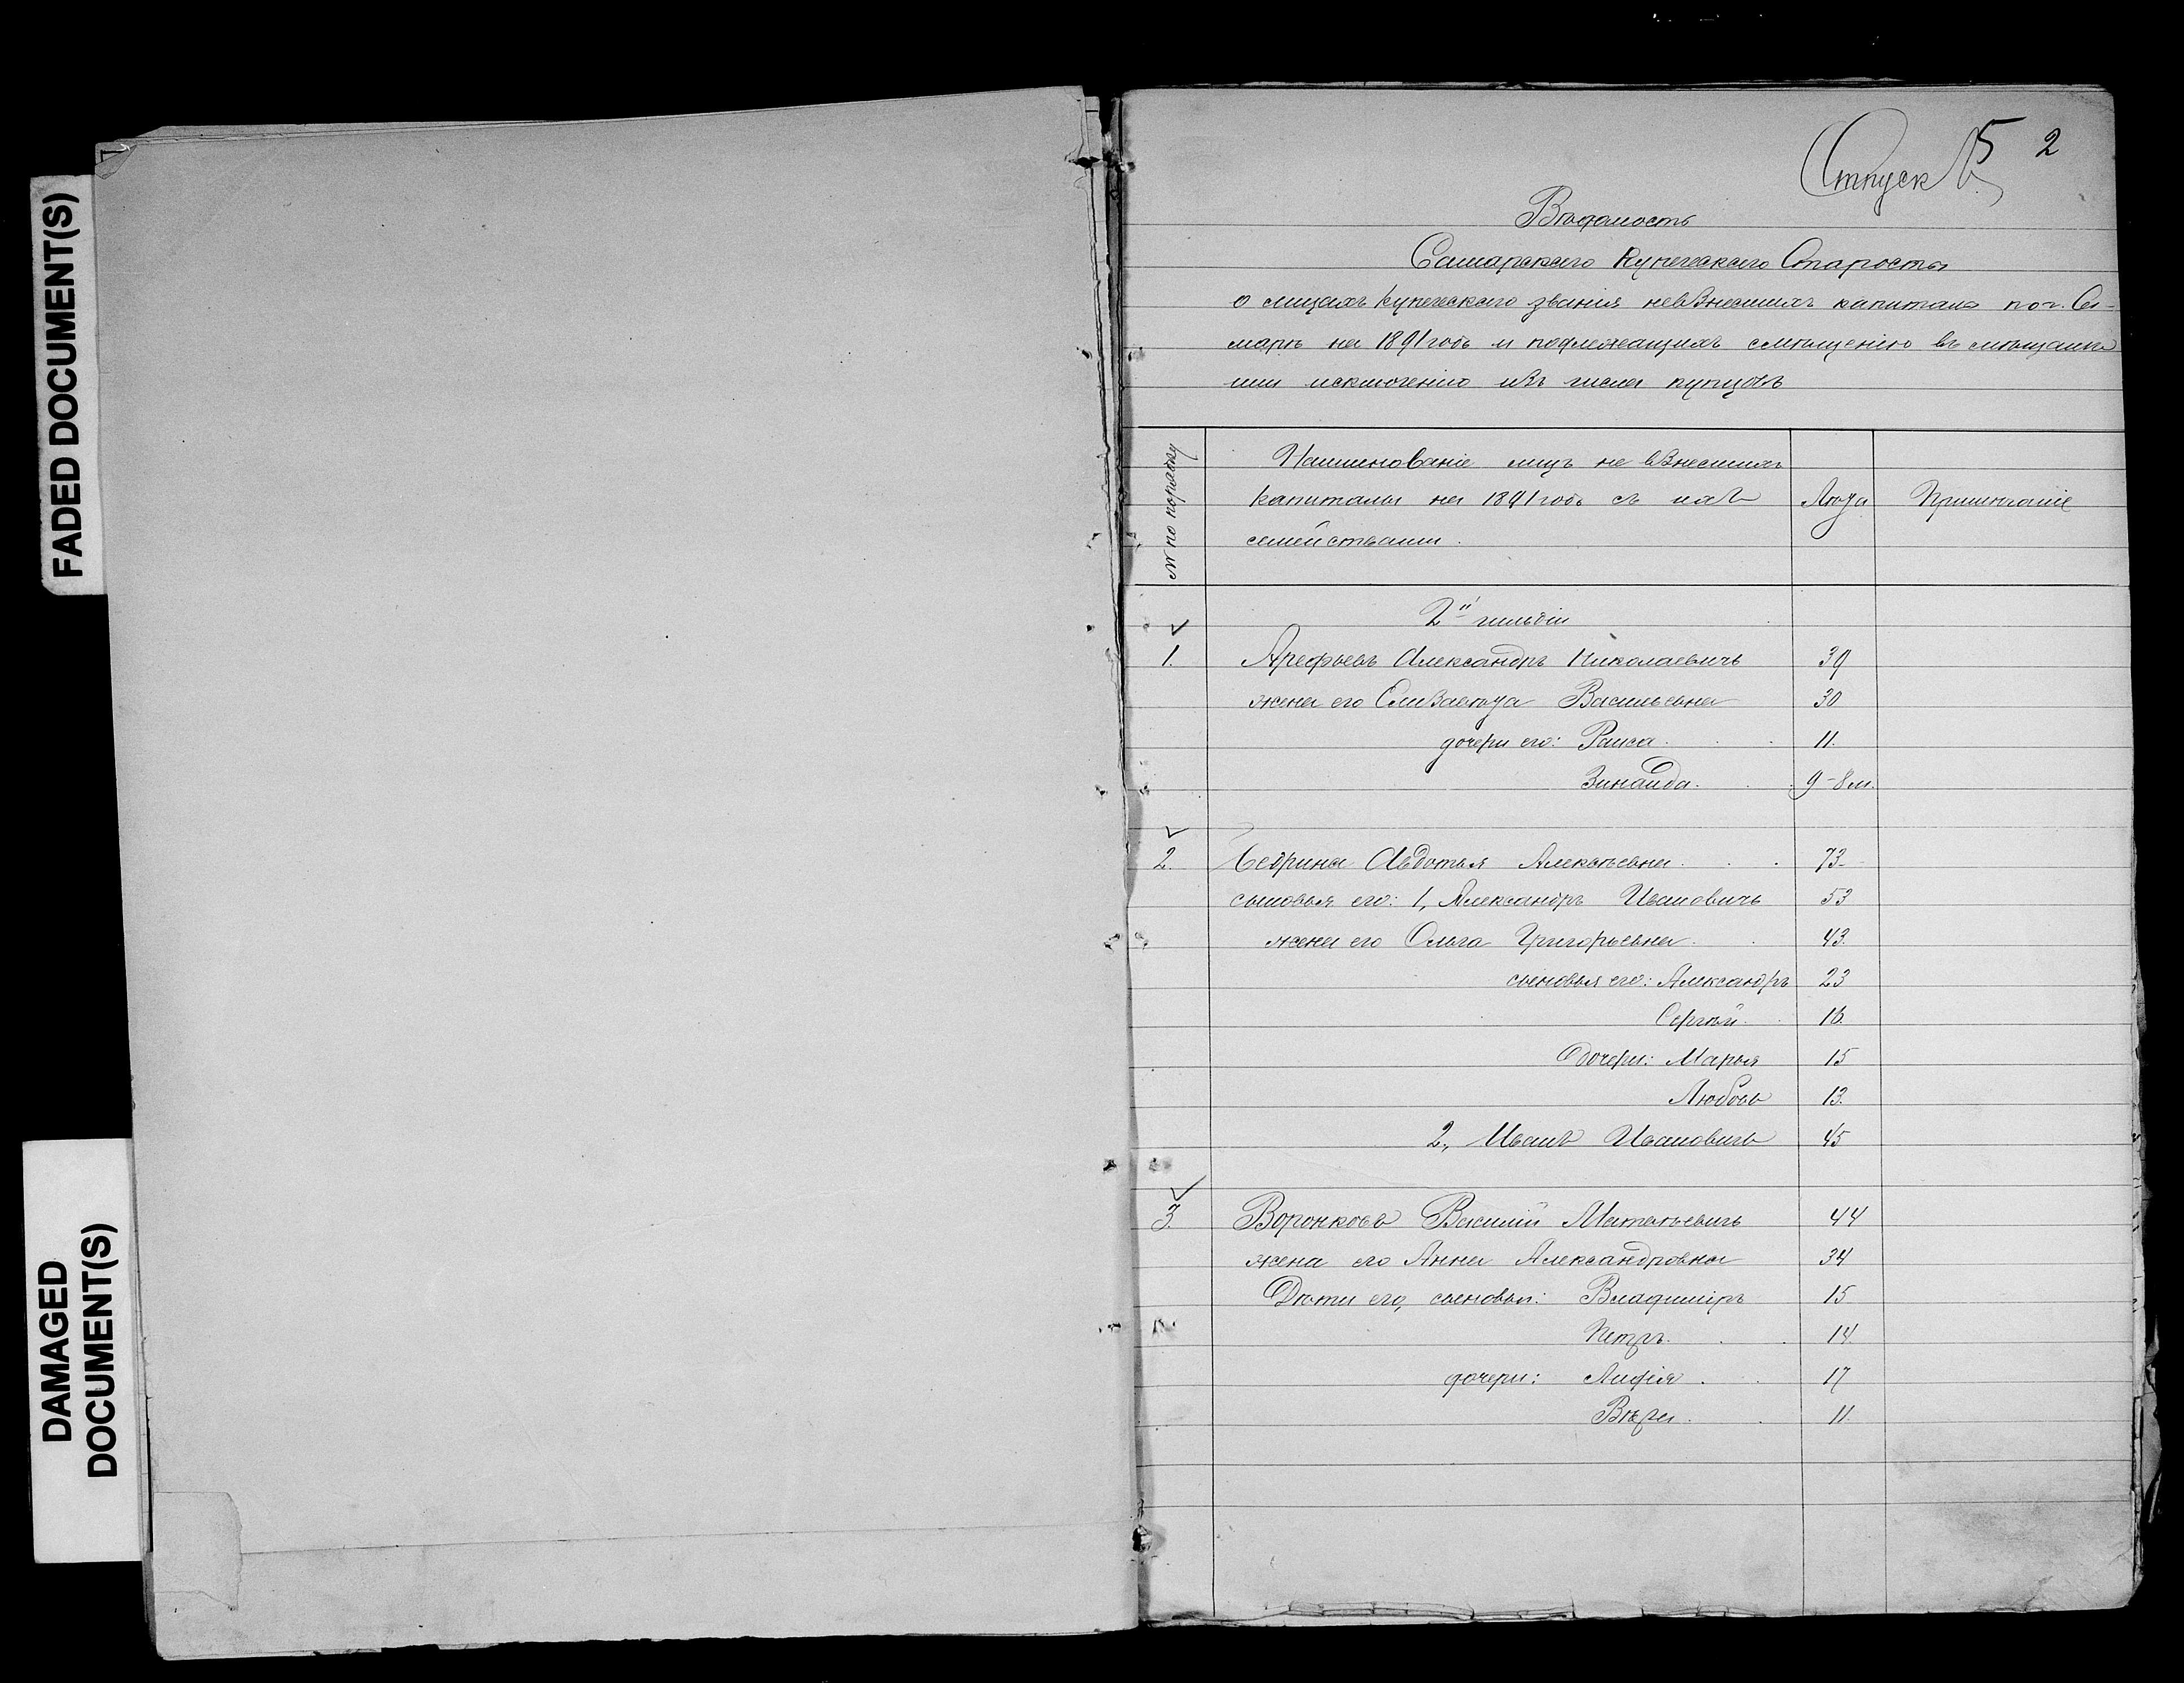 FADED DOCUMENT(S)
DAMAGED
DOCUMENT(S)
5 2
Отпускъ
Вѣдомость
Самарскаго Купеческаго Старосты
о лицахъ купеческаго званія невзнесшихъ капитала по г. Са-
марѣ на 1891 годъ и подлежащихъ смѣщенію въ мѣщане
или исключенію изъ числа купцовъ
№ по порядку
Наименованіе лицъ не взнесшихъ
капиталы на 1891 годъ съ ихъ
семействами.
Лѣта
Примѣчаніе
2й гильдіи
1. Арефьевъ Александръ Николаевичъ 39
жена его Елизавета Васильевна 30
дочери его: Раиса 11.
Зинаида. 9-8 м.
2. Авдотья Алексѣевна 73
сыновья его: 1, Александръ Ивановичъ 53
жена его Ольга Григорьевна 43.
сыновья его: Александръ 23
Сергѣй 16.
Дочери: Марья 15
Любовь 13.
2, Иванъ Ивановичъ 45
3. Воронковъ Василій Матвѣевичъ 44
жена его Анна Александровна 34
Дѣти его, сыновья: Владиміръ 15
Петръ. 14.
дочери: Лидія 17
Вѣра 11.